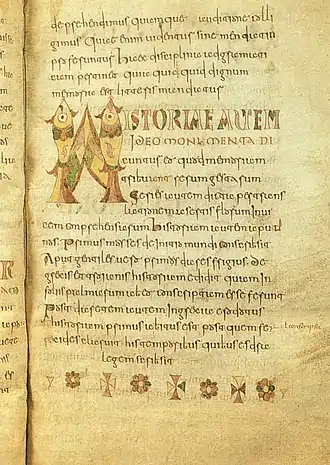 deprehendimus quam que audicione colli
gimus Quae enim videntur sine mendacio
proferuntur Haec disciplina ad gramaticam
pertinet quia quid quid dignum
memoria est litteris mendatur
HISTORIAE AUTEM
IDEO MONUMENTA DI
cuntur eo quod memoriam
tribuant rerum gestarum
Series autem dicta per trans
lationem a sertis florum invi
cem conprehensarum historiam autem aput
nos Primus moses de initia mundi conscribsit
Aput gentiles vero primus dares frigius de
grecis et troianis historiam edidit quam in fo
liis palmarum ab eo conscriptam esse ferunt
Post daretem autem in grecia erodotus
historiam primus habitus est post quem fe
recides claruit his temporibus quibus esdra
legem scribsit